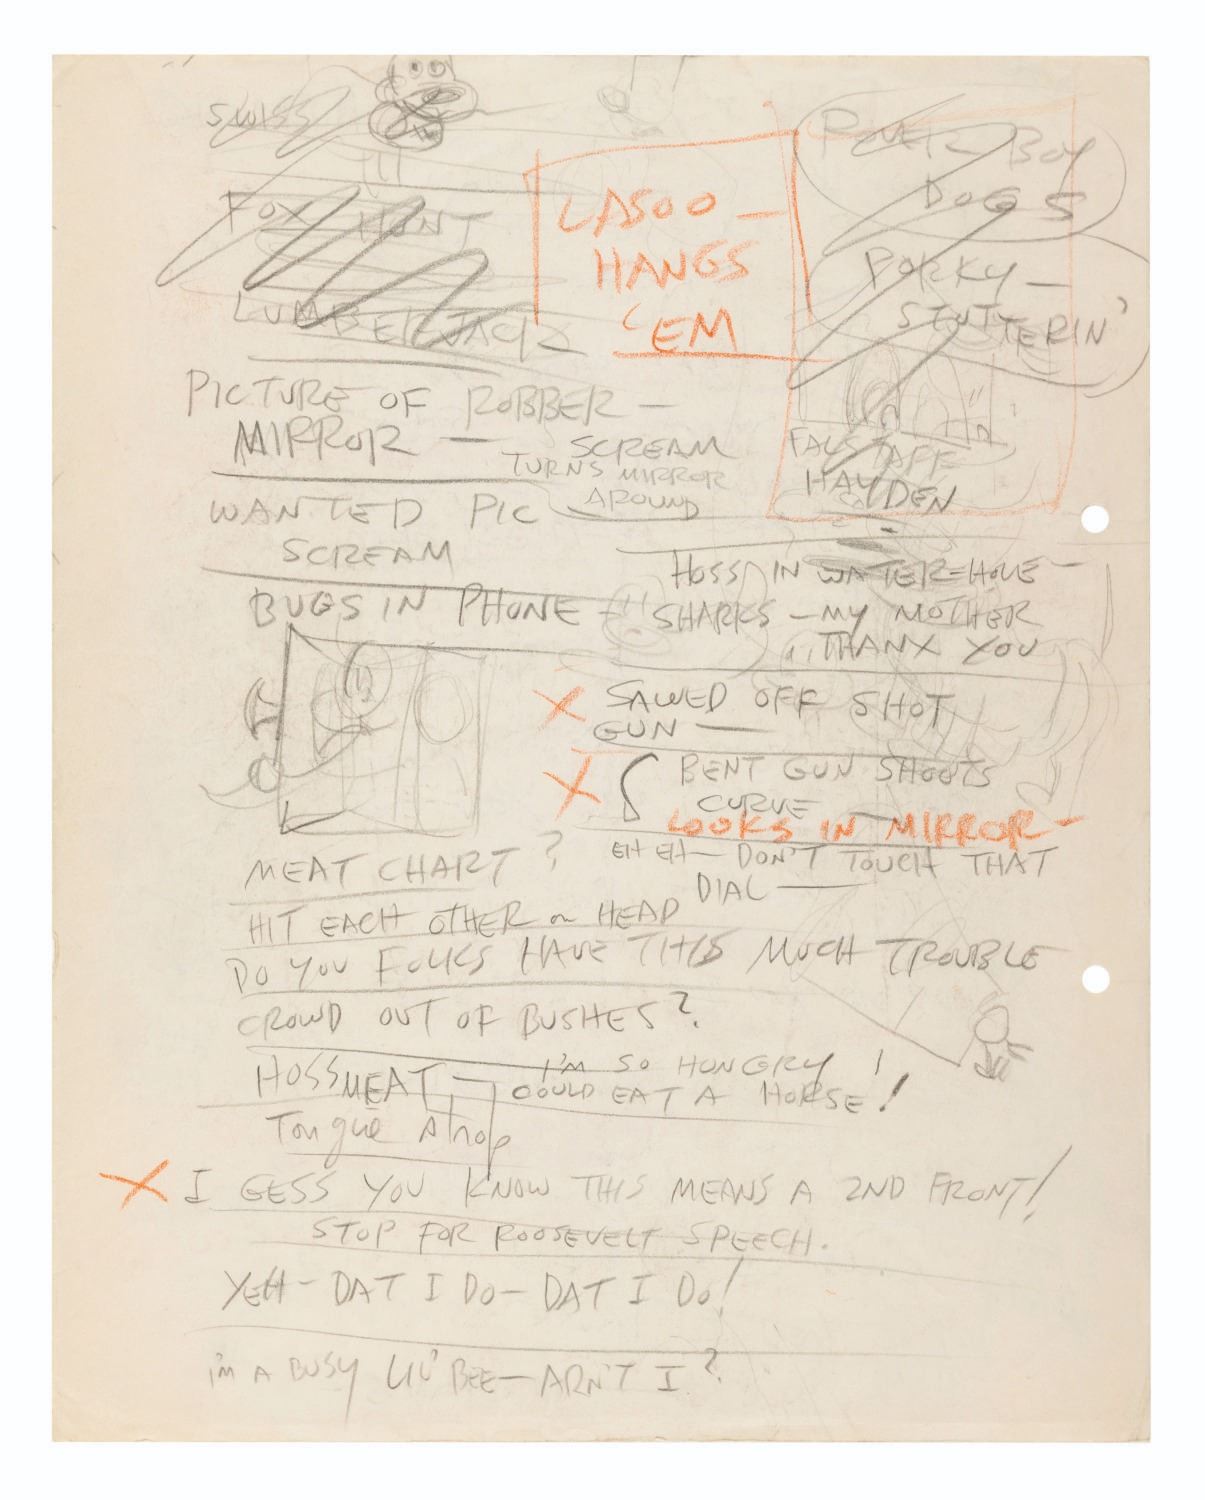 SWISS
FOX HUNT
LUMBERJACK
LASOO —
HANGS
'EM
POWER BOY
DOGS
PORKY —
STUTTERIN'
FALSTAFF
HAYDEN
PICTURE OF ROBBER —
MIRROR — SCREAM
TURNS MIRROR
AROUND
WANTED PIC
SCREAM
BUGS IN PHONE —
HOSS IN WATER-HOLE —
SHARKS — MY MOTHER
THANX YOU
X SAWED OFF SHOT
GUN —
X BENT GUN SHOOTS
CURVE —
LOOKS IN MIRROR —
EH EH — DON'T TOUCH THAT
DIAL —
MEAT CHART ?
HIT EACH OTHER on HEAD
DO YOU FOLKS HAVE THIS MUCH TROUBLE
CROWD OUT OF BUSHES ?
HOSSMEAT — I'M SO HUNGRY I
COULD EAT A HORSE !
Tongue strop
X I GESS YOU KNOW THIS MEANS A 2ND FRONT!
STOP FOR ROOSEVELT SPEECH.
YEH - DAT I DO - DAT I DO!
I'M A BUSY LIL' BEE — ARN'T I ?